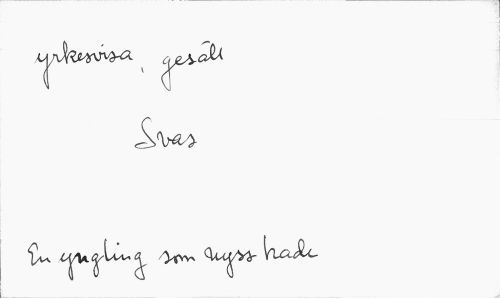 yrkesvisa, gesäll
Svas
En yngling som nyss hade